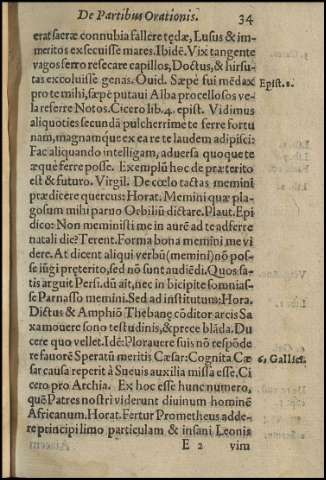 De Partibus Orationis.
34
erat sacræ connubia fallere tędæ, Lusus & im-
meritos exsecuisse mares. Ibidē. Vix tangente
vagos ferro resecare capillos, Doctus, & hirsu-
tas excoluisse genas. Ouid. Sæpè fui mēdax
pro te mihi, sæpè putaui Alba procellosos ve-
la referre Notos. Cicero lib. 4. epist. Vidimus
aliquoties secundā pulcherrimè te ferre fortu
nam, magnamque ex ea re te laudem adipisci:
Fac aliquando intelligam, aduersa quoque te
æquè ferre posse. Exemplū hoc de præterito
est & futuro. Virgil. De cœlo tactas memini
prædicere quercus: Horat. Memini quæ pla-
gosum mihi paruo Orbiliū dictare. Plaut. Epi
dico: Non meministi me in aureā ad te adferre
natali die? Terent. Forma bona memini me vi
dere. At dicent aliqui verbū (memini) nō pos-
se iūgi pręterito, sed nō sunt audiēdi. Quos sa-
tis arguit Persi. dū ait, nec in bicipite somnias-
se Parnasso memini. Sed ad institutum: Hora.
Dictus & Amphiō Thebanę cōditor arcis Sa
xa mouere sono testudinis, & prece blāda, Du
cere quo vellet. Idē: Plorauere suis nō respōde
re fauorē Speratū meritis Cæsar: Cognita Cæ
sar causa reperit à Sueuis auxilia missa esse. Ci
cero pro Archia. Ex hoc esse hunc numero,
quē Patres nostri viderunt diuinum hominē
Africanum. Horat. Fertur Prometheus adde-
re principi limo particulam & insani Leonis
E 2 vim
Epist. 2.
6. Gallici.